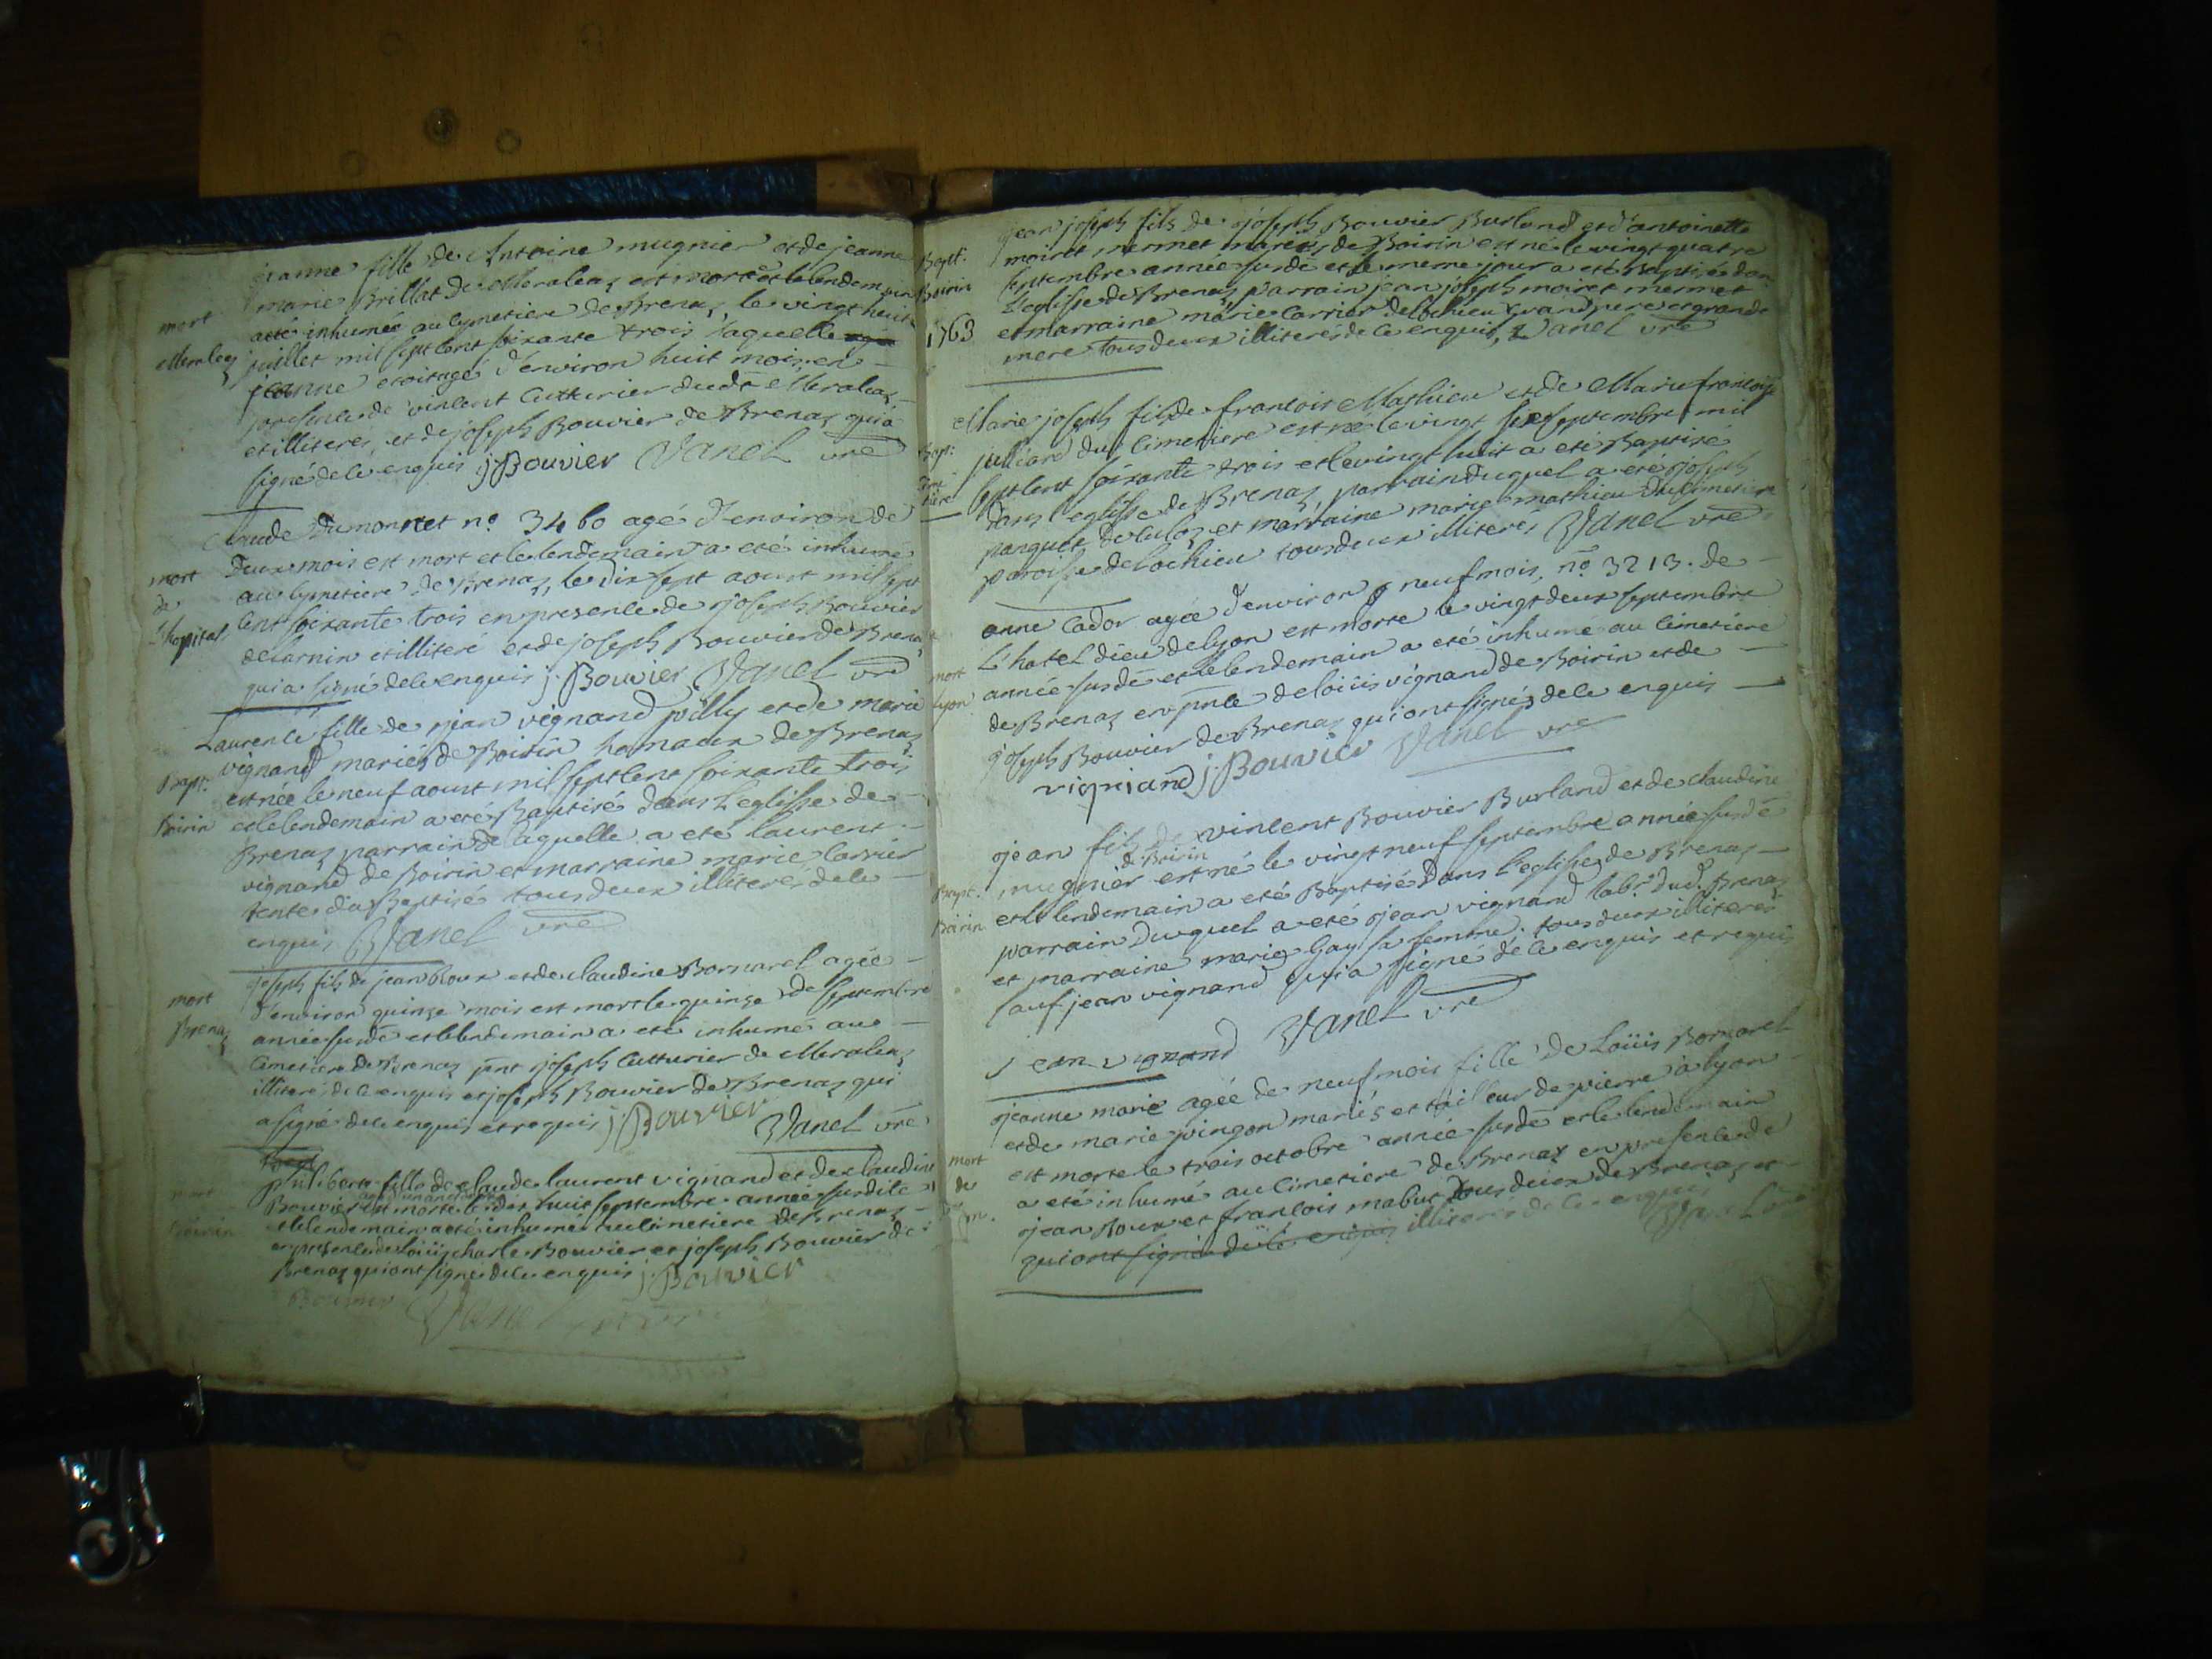 jeanne fille de Antoine mugnier et de jeanne
marie Brillat de Meraleaz est morte et le lendemain
mort
a eté inhumée au cymetiere de Brenaz le vingt huit
Meraleaz
juillet mil sept cent soixante trois laquelle
jeanne etoit agé d'environ huit mois en
presence de vincent Cutturier dudt Meraleaz
et illiteré, et de joseph Bouvier de Brenaz qui a
signé de ce enquis j: Bouvier Vanel vre
Claude Dumonnet no. 3460 agé d'environ de
mort
deux mois est mort et le lendemain a eté inhumé
de
au cymetiere de Brenaz, le dix sept aoust mil sept
L'hopital
cent soixante trois en presence de joseph Bouvier
de et illiteré et de joseph Bouvier de Brenaz
qui a signé de ce enquis j: Bouvier Vanel vre
Laurence fille de jean vignand pilly et de marie
vignand mariés de Boirin hamaux de Brenaz
Bapt:
est née le neuf aoust mil sept cent soixante trois
Boirin
et le lendemain a eté Baptisé dans l'eglisse de
Brenaz parrain de laquelle a eté laurent
vignand de Boirin et marraine marie Carrier
tente du Baptisé tous deux illiterés de ce
enquis Vanel vre
joseph fils de jean Roux et de claudine Bornarel agée
mort
d'environ quinze mois est mort le quinze de septembre
Brenaz
année susde et le lendemain a eté inhumé au
Cimetiere de Brenaz pnt joseph Cutturier de Meraleaz
illiteré de ce enquis et joseph Bouvier de Brenaz qui
a signé de ce enquis et requis j: Bouvier
Vanel vre
philiberte fille de claude laurent vignand et de claudine
mort
Bouvier est morte le dix huit septembre année susdite
Boirin
et le lendemain a eté inhumé au cimetiere de Brenaz
en presence de Loüis charle Bouvier et joseph Bouvier de
Brenaz qui ont signé de ce enquis j: Bouvier
Bouvier Vanel
jean joseph fils de joseph Bouvier Burland et d'antoinette
Bapt:
moiret mermet mariés de Boirin est né le vingt quatre
Boirin
septembre année susde et le meme jour a eté Baptisé dans
L'eglisse de Brenaz, parrain jean joseph moiret mermet
1763
et marraine marie Carrier de Lochieu grand pere et grande
mere tous deux illiterés de ce enquis, Vanel vre
Marie joseph fils de francois Mathieu et de Marie francoise
Bapt:
julliard du Cimetiere est né le vingt six septembre mil
Cime
tiere
sept cent soixante trois et le vingt huit a eté Baptisé
dans l'eglisse de Brenaz, parrain duquel a eté joseph
panquet de culoz et marraine marie mathieu du Cimetiere
paroisse de Lochieu tous deux illiterés Vanel vre
anne Cador agée d'environ neuf mois, no 3213. de
L'hotel dieu de Lyon est morte le vingt deux septembre
mort
année susde et le lendemain a eté inhumé au Cimetiere
Lyon
de Brenaz en pnce de loüis vignand de Boirin et de
joseph Bouvier de Brenaz qui ont signés de ce enquis
vigniand j: Bouvier Vanel vre
jean fils de vincent Bouvier Burland et de claudine
de Boirin
mugnier est né le vingt neuf septembre année susde
Bapt:
et le lendemain a eté Baptisé dans L'eglisse de Brenaz
Boirin
parrain duquel a eté jean vignand labr. dud. Brenaz
et marraine marie Gay sa femme, tous deux illiterés
sauf jean vignand qui a signé de ce enquis et requis
jean vignand Vanel vre
jeanne marie agée de neuf mois fille de Loüis Bornarel
et de marie pingon mariés et tailleur de pierre à lyon
mort
est morte le trois octobre année susde et le lendemain
de
a eté inhumé au Cimetiere de Brenaz en presence de
jean Roux et francois mabut tous deux de Brenaz et
qui ont signé de ce enquis illiterés de ce enquis
Vanel